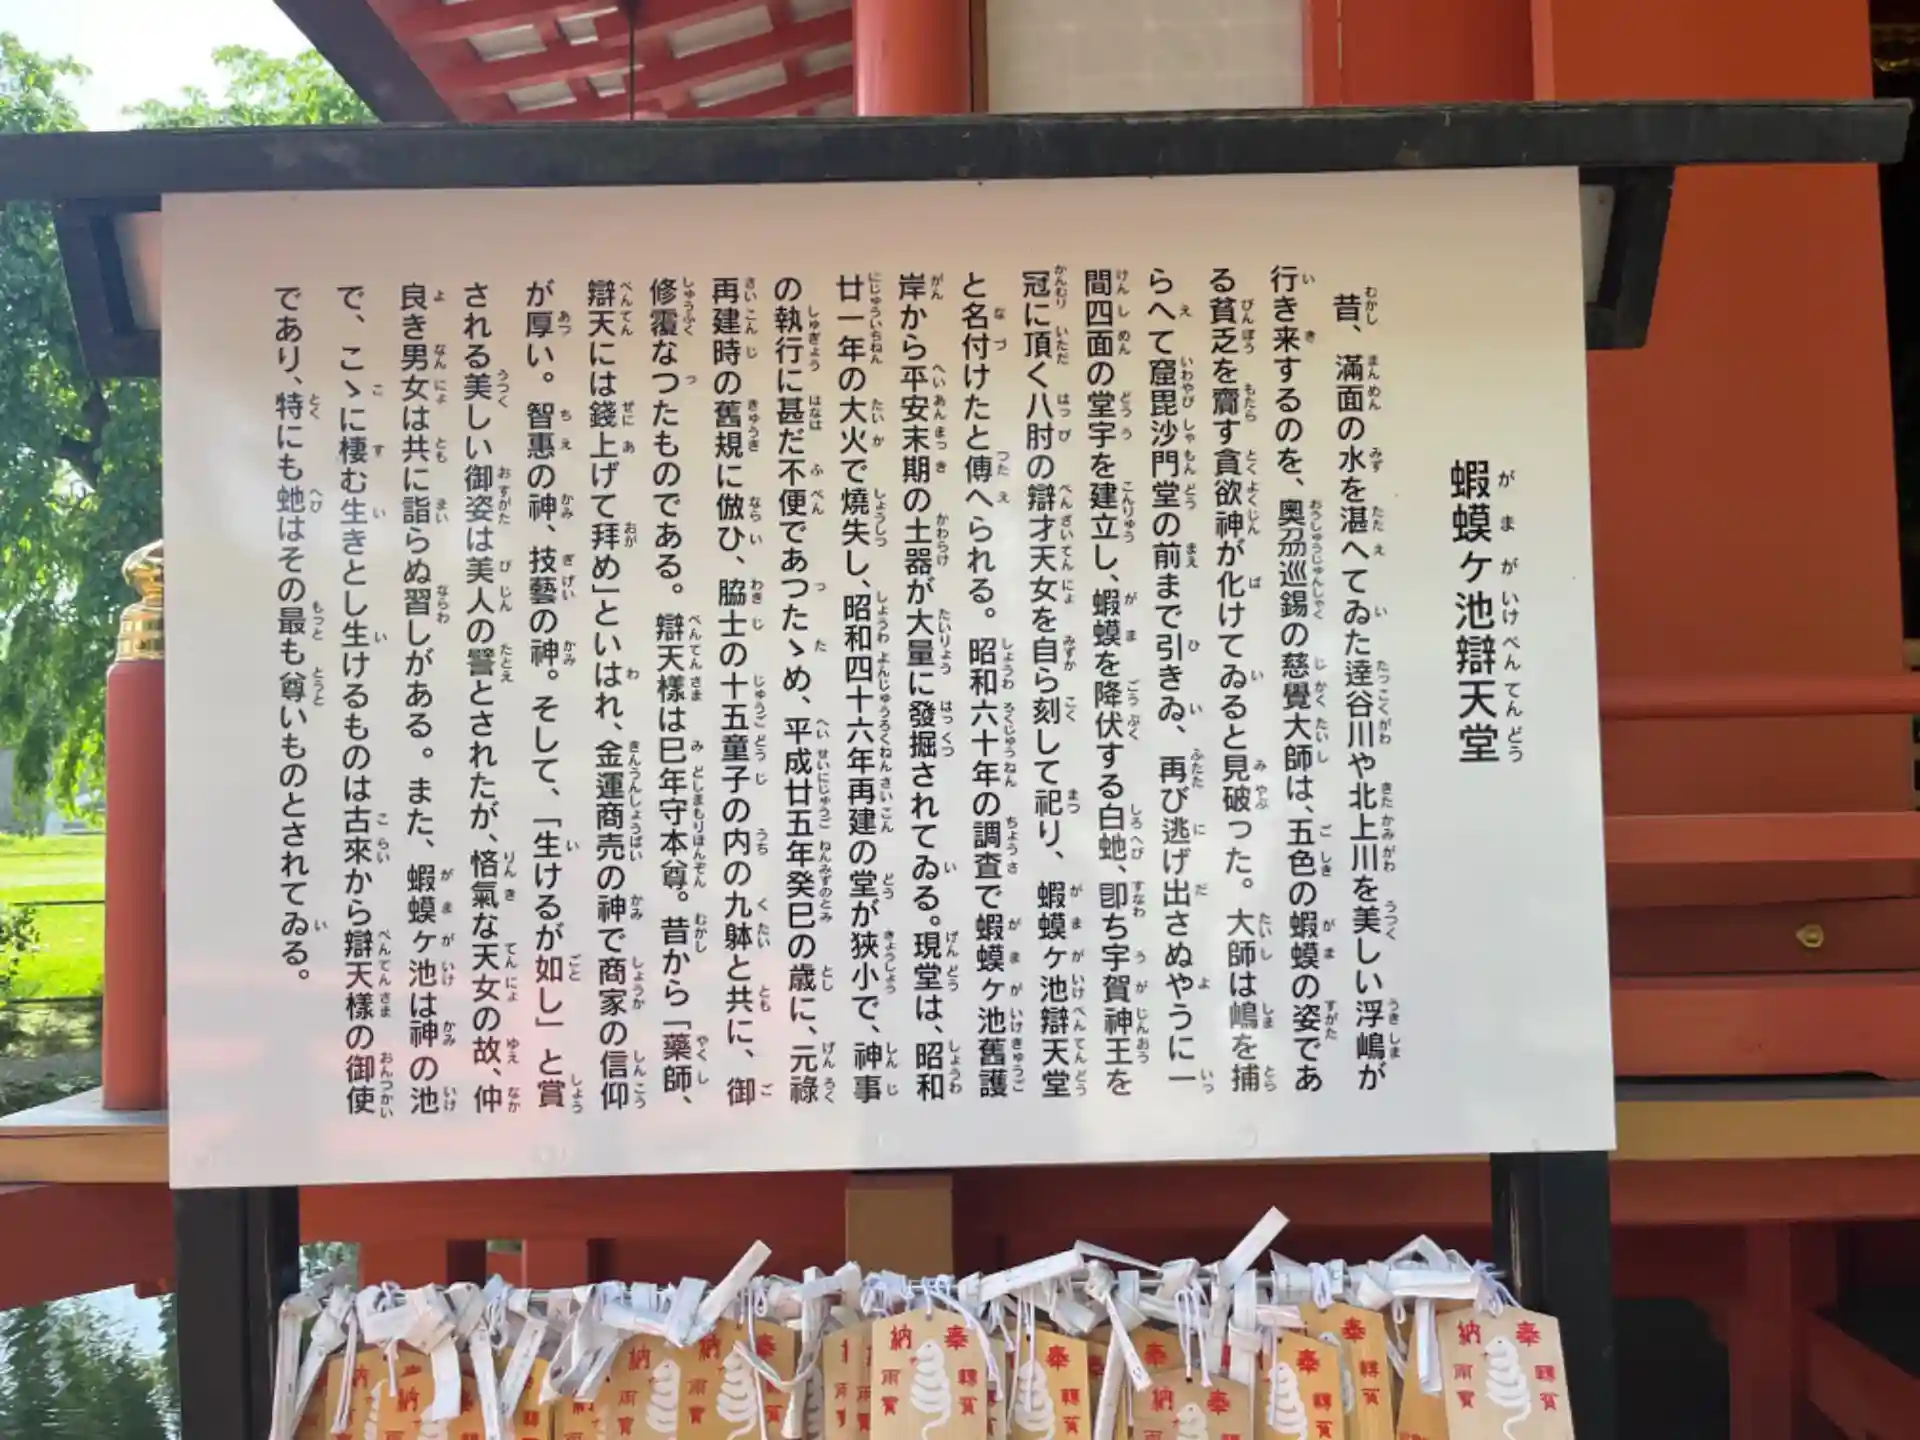 蝦蟆ヶ池辯天堂
昔、滿面の水を湛へてゐた達谷川や北上川を美しい浮嶋が
行き来するのを、奧刕巡錫の慈覺大師は、五色の蝦蟆の姿であ
る貧乏を齎す貪欲神が化けてゐると見破った。大師は嶋を捕
らへて窟毘沙門堂の前まで引きゐ、再び逃げ出さぬやうに一
間四面の堂宇を建立し、蝦蟆を降伏する白虵、卽ち宇賀神王を
冠に頂く八肘の辯才天女を自ら刻して祀り、蝦蟆ヶ池辯天堂
と名付けたと傳へられる。昭和六十年の調査で蝦蟆ヶ池舊護
岸から平安末期の土器が大量に發掘されてゐる。現堂は、昭和
廿一年の大火で燒失し、昭和四十六年再建の堂が狹小で、神事
の執行に甚だ不便であつたゝめ、平成廿五年癸巳の歳に、元祿
再建時の舊規に倣ひ、脇士の十五童子の内の九躰と共に、御
修覆なつたものである。辯天樣は巳年守本尊。昔から「藥師、
辯天には錢上げて拜め」といはれ、金運商売の神で商家の信仰
が厚い。智惠の神、技藝の神。そして、「生けるが如し」と賞
される美しい御姿は美人の譬とされたが、悋氣な天女の故、仲
良き男女は共に詣らぬ習しがある。また、蝦蟆ヶ池は神の池
で、こゝに棲む生きとし生けるものは古來から辯天樣の御使
であり、特にも虵はその最も尊いものとされてゐる。
奉納
奉納
奉納